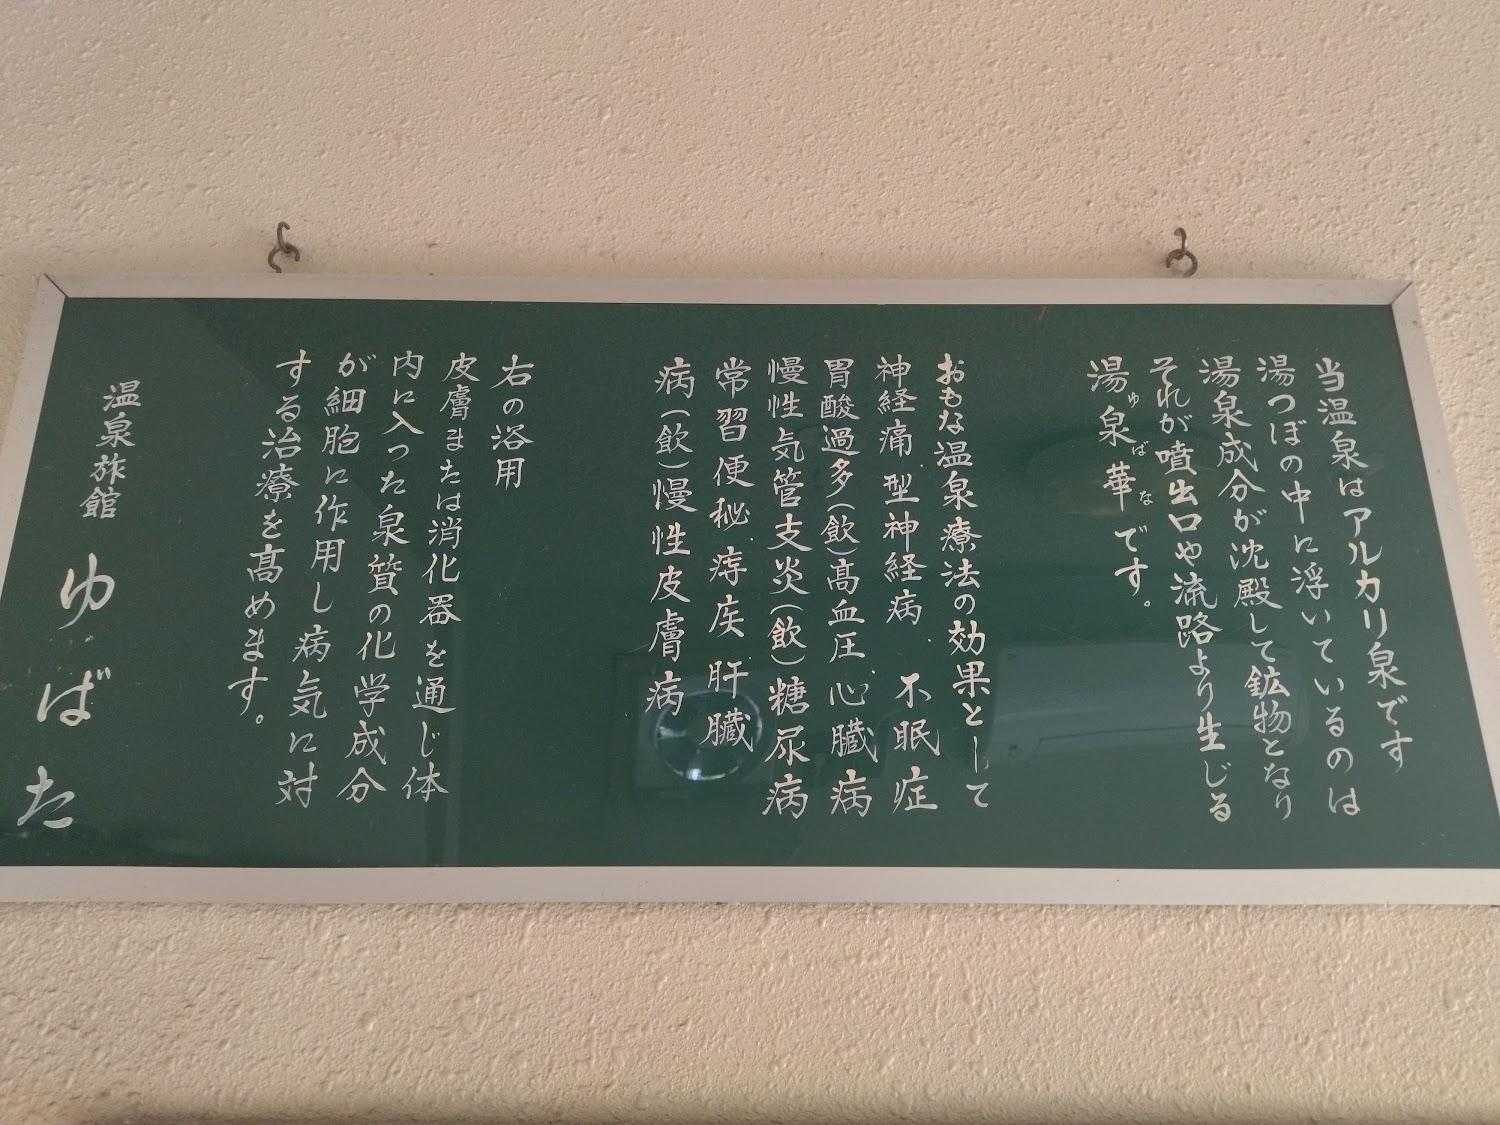 当温泉はアルカリ泉です
湯つぼの中に浮いているのは
湯泉成分が沈殿して鉱物となり
それが噴出口や流路より生じる
湯泉華です。
ゆばな
おもな温泉療法の効果として
神経痛.型神経病.不眠症
胃酸過多(飲)高血圧.心臓病
慢性気管支炎(飲)糖尿病
常習便秘.痔疾.肝臓
病(飲)慢性皮膚病
右の浴用
皮膚または消化器を通じ体
内に入った泉質の化学成分
が細胞に作用し病気に対
する治療を高めます。
温泉旅館 ゆばた